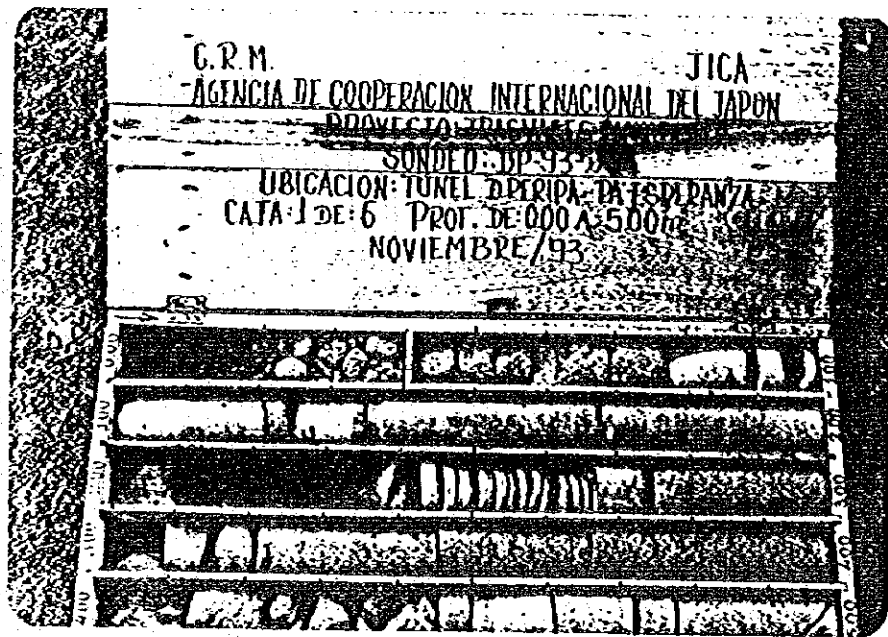 C.R.M. JICA
AGENCIA DE COOPERACION INTERNACIONAL DEL JAPON
PROYECTO
SONDEO: BP-93-
UBICACION: TUNEL D.PERIPA-LA ESPERANZA
CAJA: 1 DE: 6 PROF. DE: 0.00 A 5.00m
NOVIEMBRE/93
0.00 1.00
1.00 2.00
3.00
3.00 4.00
4.00